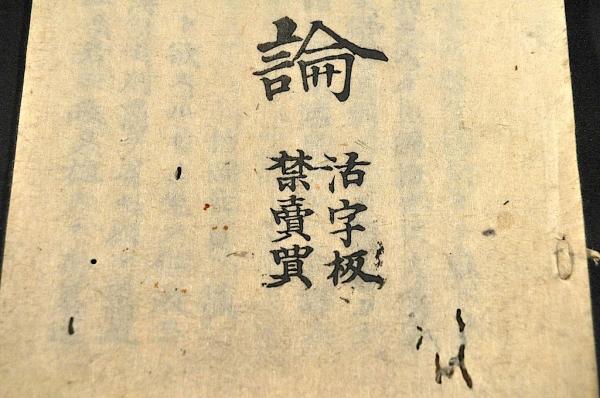 論
活字板
禁賣買